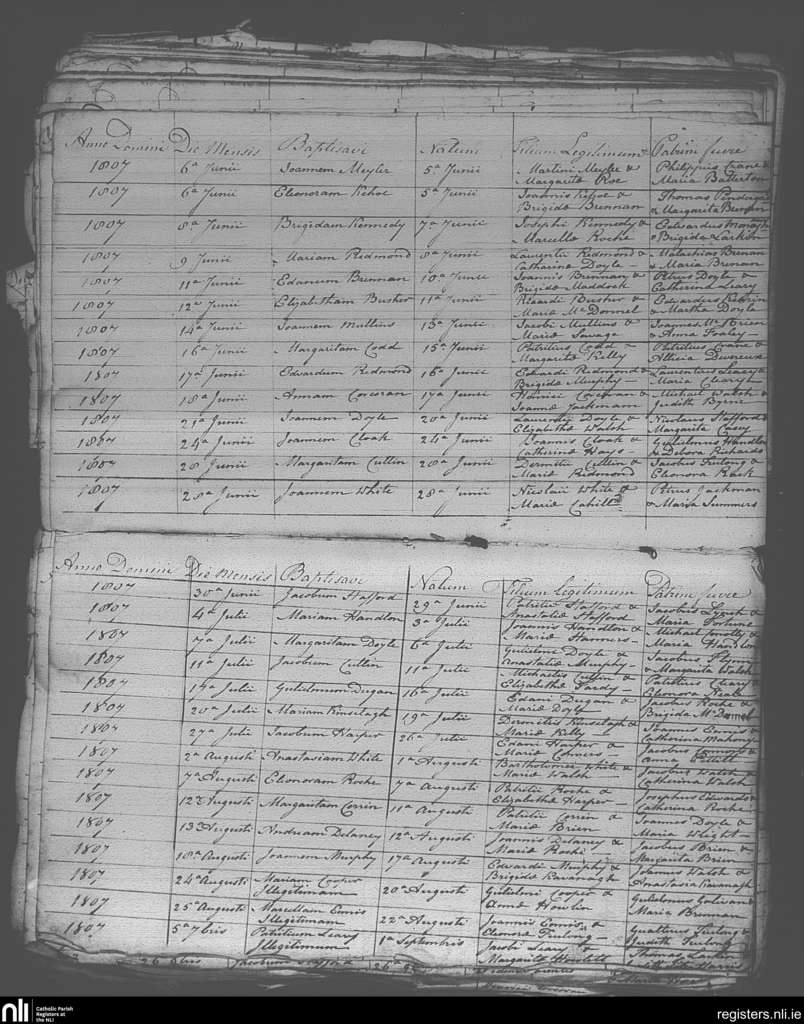 Anno Domini Die Mensis Baptisavi Natum Filium Legitimum Patrini fuere
1807 6a Junii Joannem Meyler 5a Junii Martini Meyler & Philippus Crane &
Margarita Roe Maria Batterton
1807 6a Junii Eleonoram Kehoe 5a Junii Joannis Kehoe & Thomas
Brigida Brennan & Margarita
1807 8a Junii Brigidam Kennedy 7a Junii Josephi Kennedy & Edvardus
Marcella Roche & Brigida Larkin
1807 9 Junii Mariam Redmond 8a Junii Laurentii Redmond & Malachias Brenan
Catharina Doyle & Maria Brenan
1807 11a Junii Edanum Brennan 10a Junii Joannis Brennan & Petrus Doyle &
Brigida Maddock Catherina Leary
1807 12a Junii Elizabetham Busher 11a Junii Busher & Edvardus
Maria McDonnel & Martha Doyle
1807 14a Junii Joannem Mullins 13a Junii Jacobi Mullins & Joannes McBrien
Maria Savage & Anna Foaley
1807 16a Junii Margaritam Codd 15a Junii Patritius Codd & Patritius Crane &
Margarita Kelly Allicia Devreux
1807 17a Junii Edwardum Redmond 16a Junii Edwardi Redmond & Laurentius Leacy &
Brigida Murphy — Maria Cleary
1807 18a Junii Annam Corcoran 17a Junii Corcoran & Michael Walsh &
Joanna Jackmann Judith Byrne
1807 21a Junii Joannem Doyle 20a Junii Laurentii Doyle & Nicolaus Stafford &
Elizabetha Walsh Margarita Casey
1807 24a Junii Joannem Cloak 24a Junii Joannis Cloak & Gulielmus Handlon
Catherina Hays — & Debora Richards
1807 28 Junii Margaritam Cullin 28a Junii Dermitii Cullin & Jacobus Furlong &
Maria Redmond Eleonora Rack
1807 28a Junii Joannem White 28a Junii Nicolaii White & Petrus Jackman
Maria Cahill & Maria Summers
Anno Domini Die Mensis Baptisavi Natum Filium legitimum Patrini fuere
1807 30a Junii Jacobum Stafford 29a Junii Patritii Stafford & Jacobus Lynch &
Anastatia Stafford Maria Fortune
1807 4a Julii Mariam Handlon 3a Julii Joannis Handlon & Michael
Maria Hanners — Maria Handlon
1807 7a Julii Margaritam Doyle 6a Julii Gulielmi Doyle & Jacobus Flynn
Anastatia Murphy — & Margarita Walsh
1807 11a Julii Jacobum Cullin 11a Julii Michaelis Cullin & Patritius Cleary &
Elizabetha Fardy — Eleonora
1807 17a Julii Gulielmum Dugan 16a Julii Edani Dugan & Jacobus Roche &
Maria Doyle Brigida McDonnel
1807 20a Julii Mariam Kinselagh 19a Julii Dermitius Kinselagh & Joannes Ennis &
Maria Kelly — Catherina Mahony
1807 27a Julii Jacobum Harper 26a Julii Edani Harper & Jacobus Connors &
Maria Connors — Anna Pettitt
1807 2a Augusti Anastasiam White 1a Augusti Bartholomei White & Jacobus Walsh &
Maria Walsh Catherina Walsh
1807 7a Augusti Eleonoram Roche 7a Augusti Patritii Roche & Josephus Edwards &
Elizabetha Harper — Catherina Roche
1807 12a Augusti Margaritam Corrin 11a Augusti Patritii Corrin & Joannes Doyle &
Maria Brien Maria Wright —
1807 13a Augusti Andream Delaney 12a Augusti Joannis Delaney & Jacobus Brien &
Maria Roche Margarita Brien
1807 18a Augusti Joannem Murphy 17a Augusti Edwardi Murphy & Joannes Walsh &
Brigida Kavanagh Anastasia Kavanagh
1807 24a Augusti Mariam Cooper 20a Augusti Gulielmi Cooper & Gulielmus
Illegitimam Anna Howlin Maria Brennan
1807 25a Augusti Marcellam Ennis 22a Augusti Joannis Ennis & Gualterus Furlong &
Illegitimam Elenora Furlong — Judith Furlong
1807 5a 7bris Patritium Leary 1a Septembris Jacobi Leary & Thomas
Illegitimum Margarita Howlett
nli Catholic Parish
Registers at
the NLI
registers.nli.ie